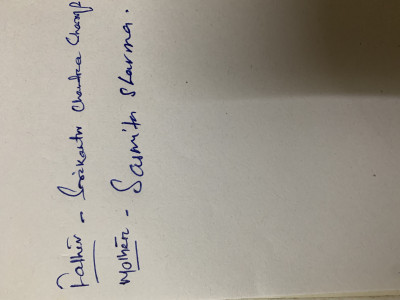 Father - Srikanta Chandra
Mother - Sasmita Sharma.